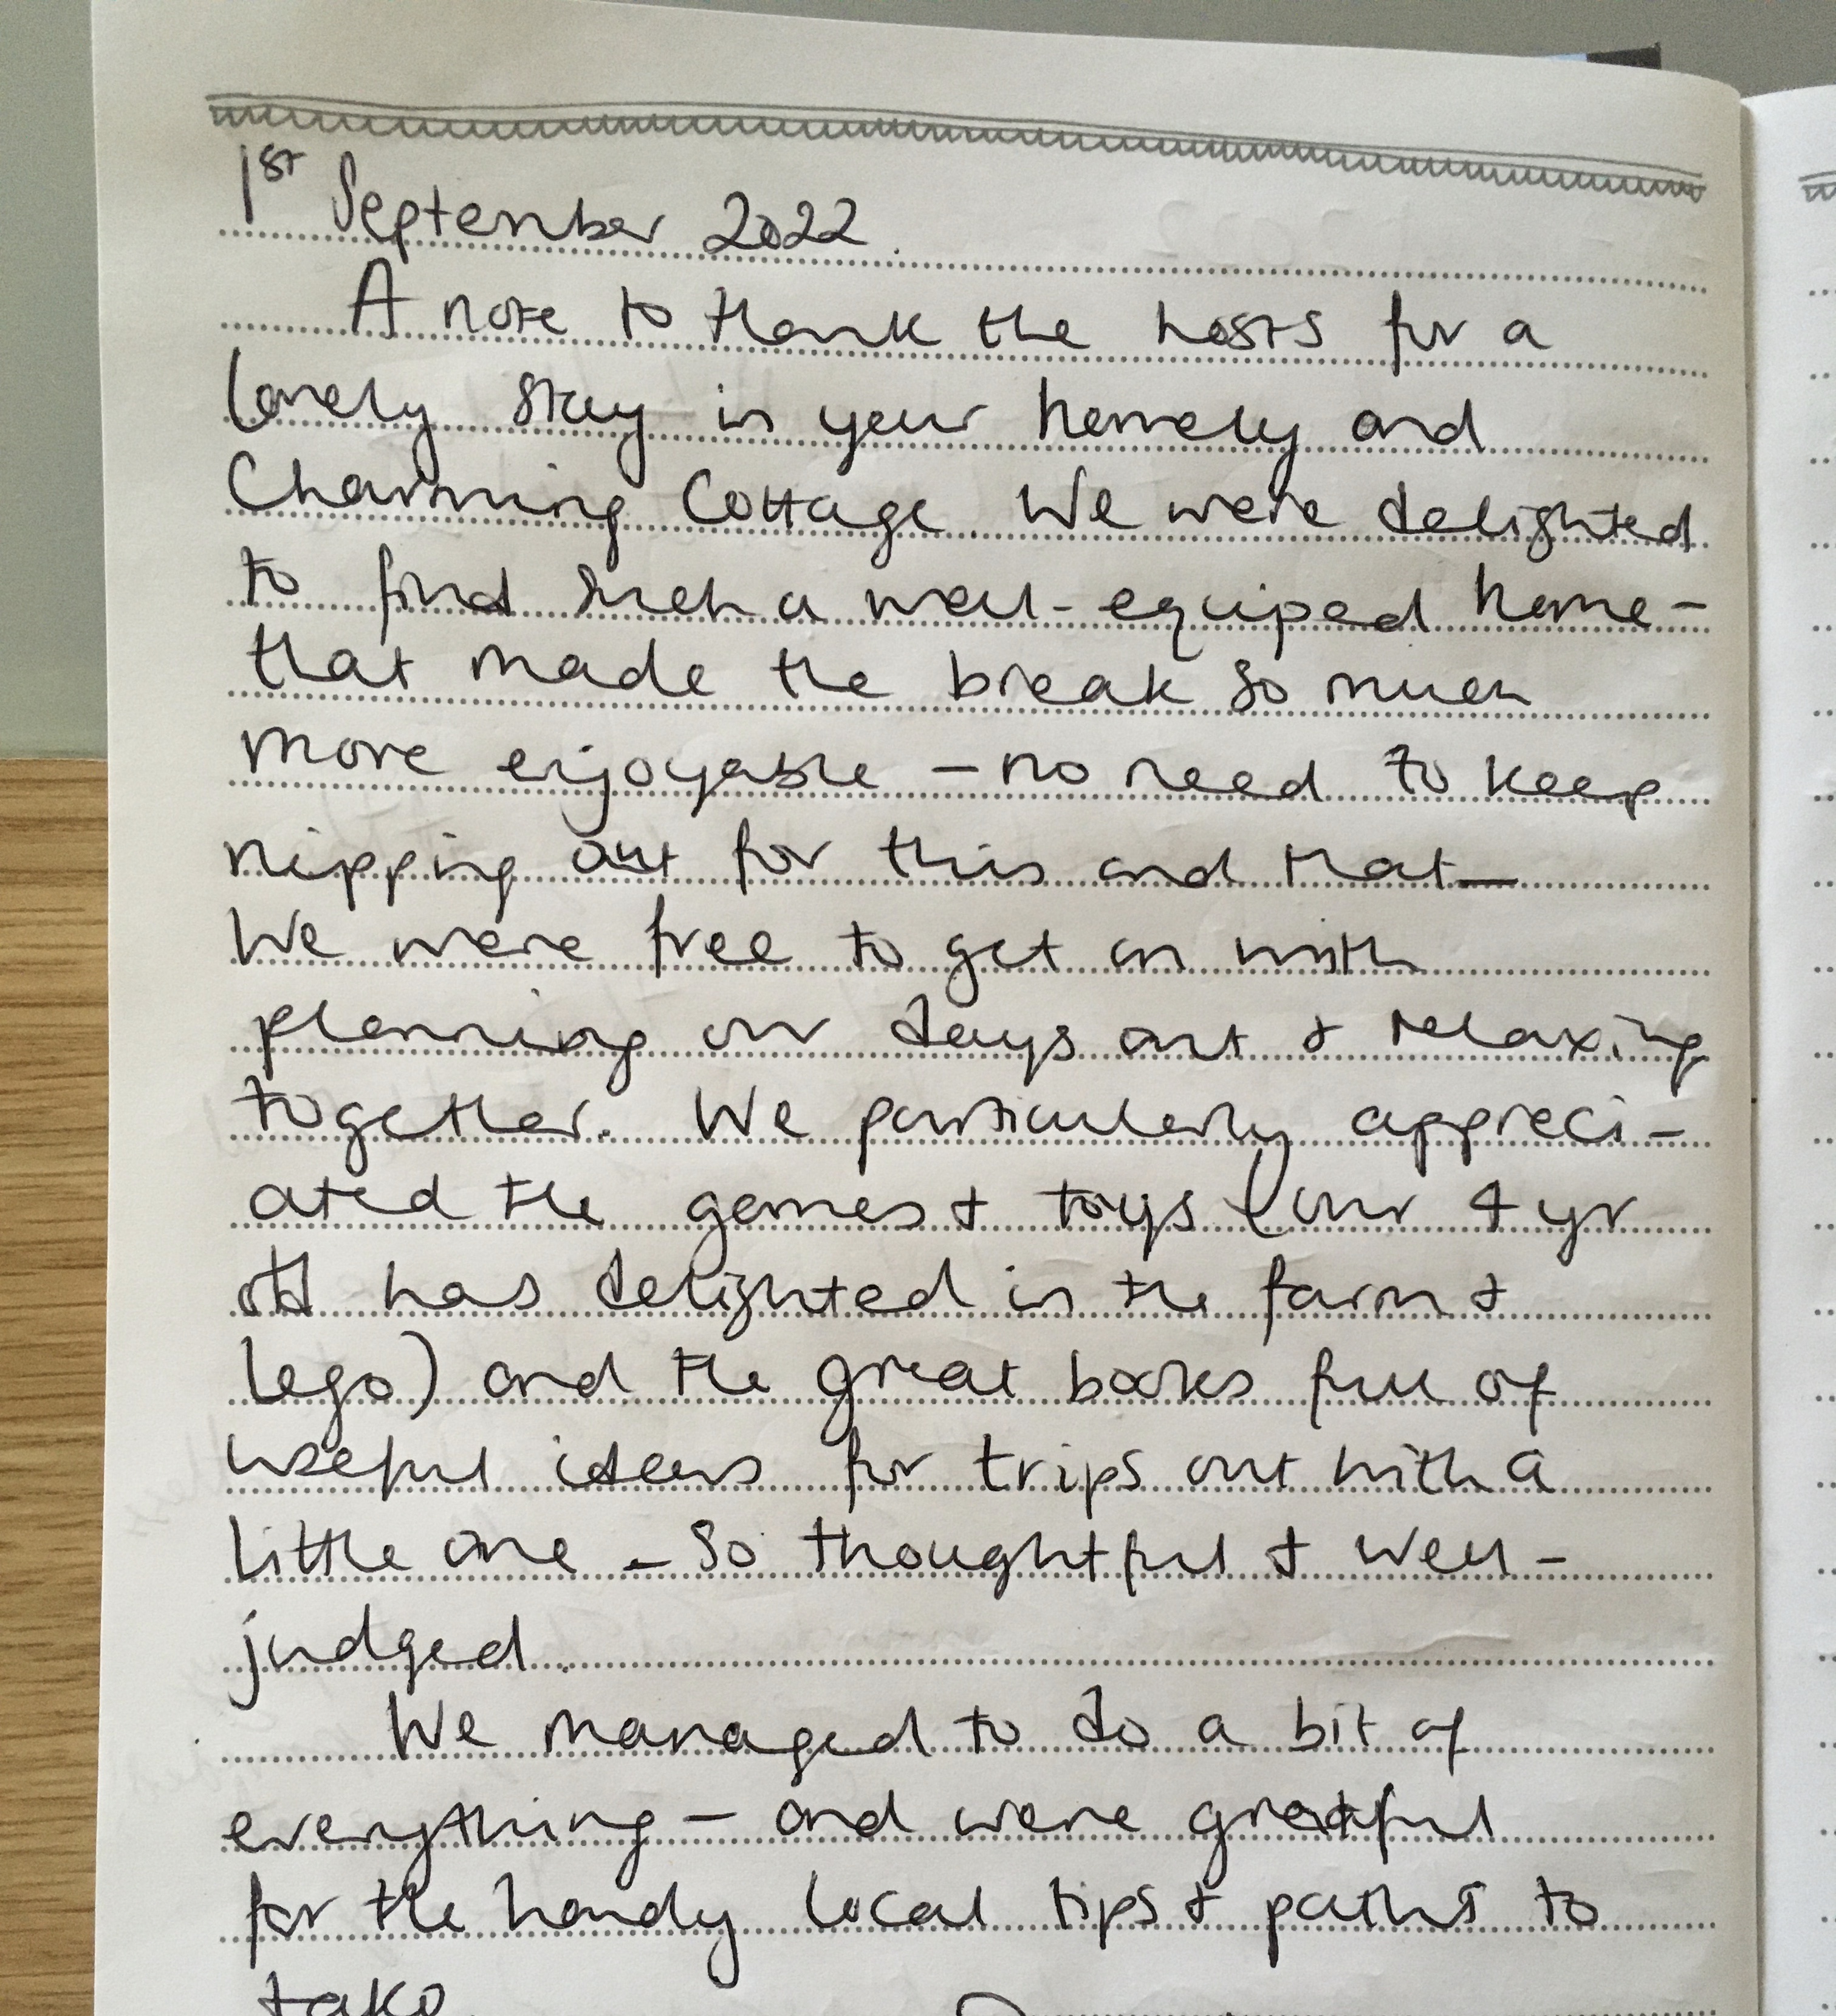 1st September 2022.
A note to thank the hosts for a
lovely stay in your homely and
Charming Cottage. We were delighted
to find such a well-equiped home -
that made the break so much
more enjoyable - no need to keep
nipping out for this and that -
We were free to get on with
planning our days out & relaxing
together. We particularly appreci-
ated the games & toys (our 4 yr
old has delighted in the farm &
lego) and the great books full of
useful ideas for trips out with a
little one - so thoughtful & well-
judged.
We managed to do a bit of
everything - and were greatful
for the handy local tips & paths to
take.